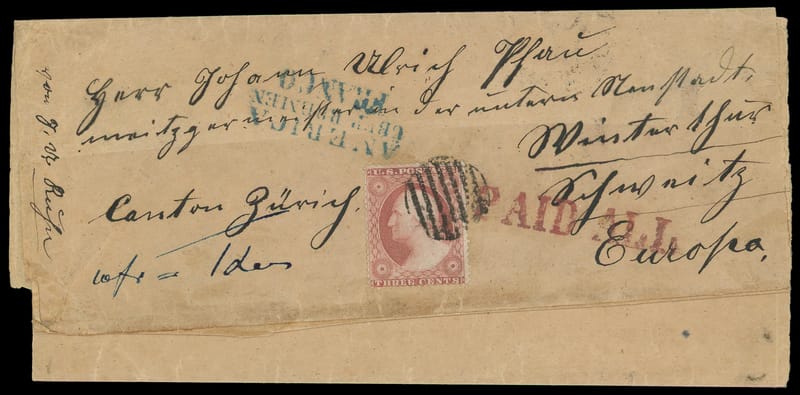 Herr Johann Ulrich Pfau
meitzgermeister in der untern Neustadt,
Winterthur
Canton Zürich.
Schweitz
Europa.
AMERICA
ÜBER BREMEN
FRANCO
U.S. POST
THREE CENTS
PAID ALL
von J. U.